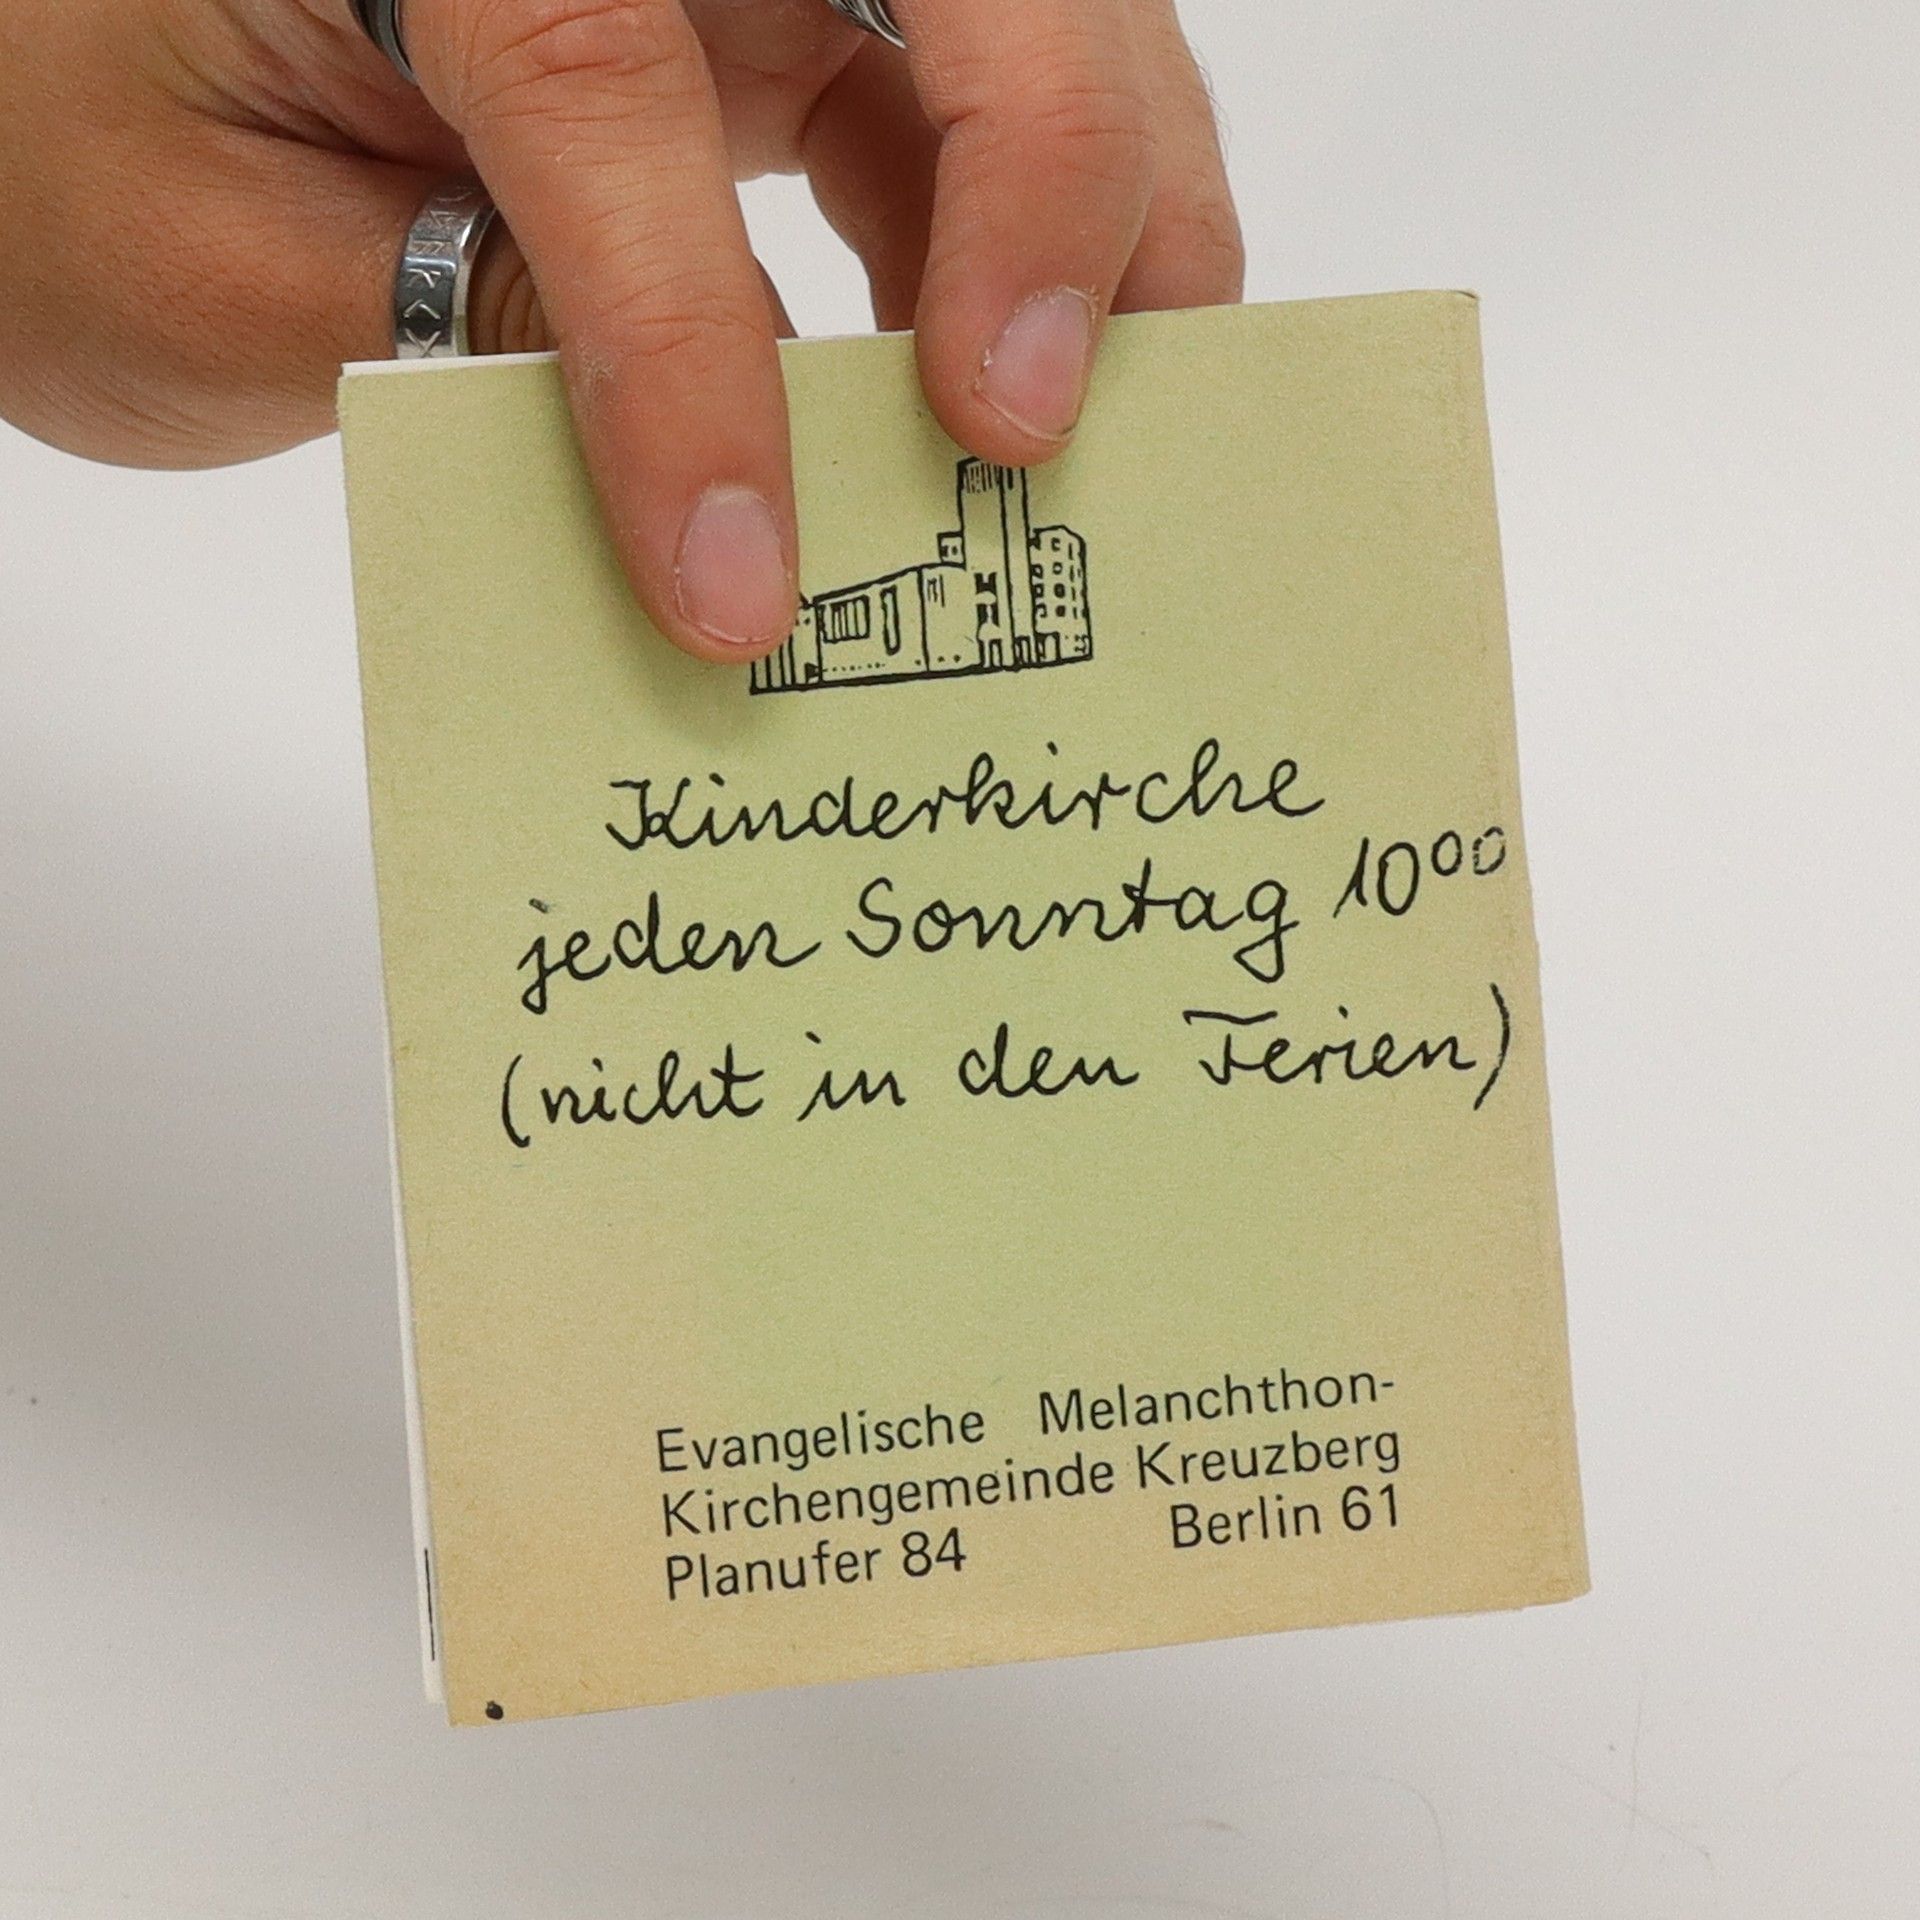 Kinderkirche
jeden Sonntag 10⁰⁰
(nicht in den Ferien)
Evangelische Melanchthon-
Kirchengemeinde Kreuzberg
Planufer 84 Berlin 61